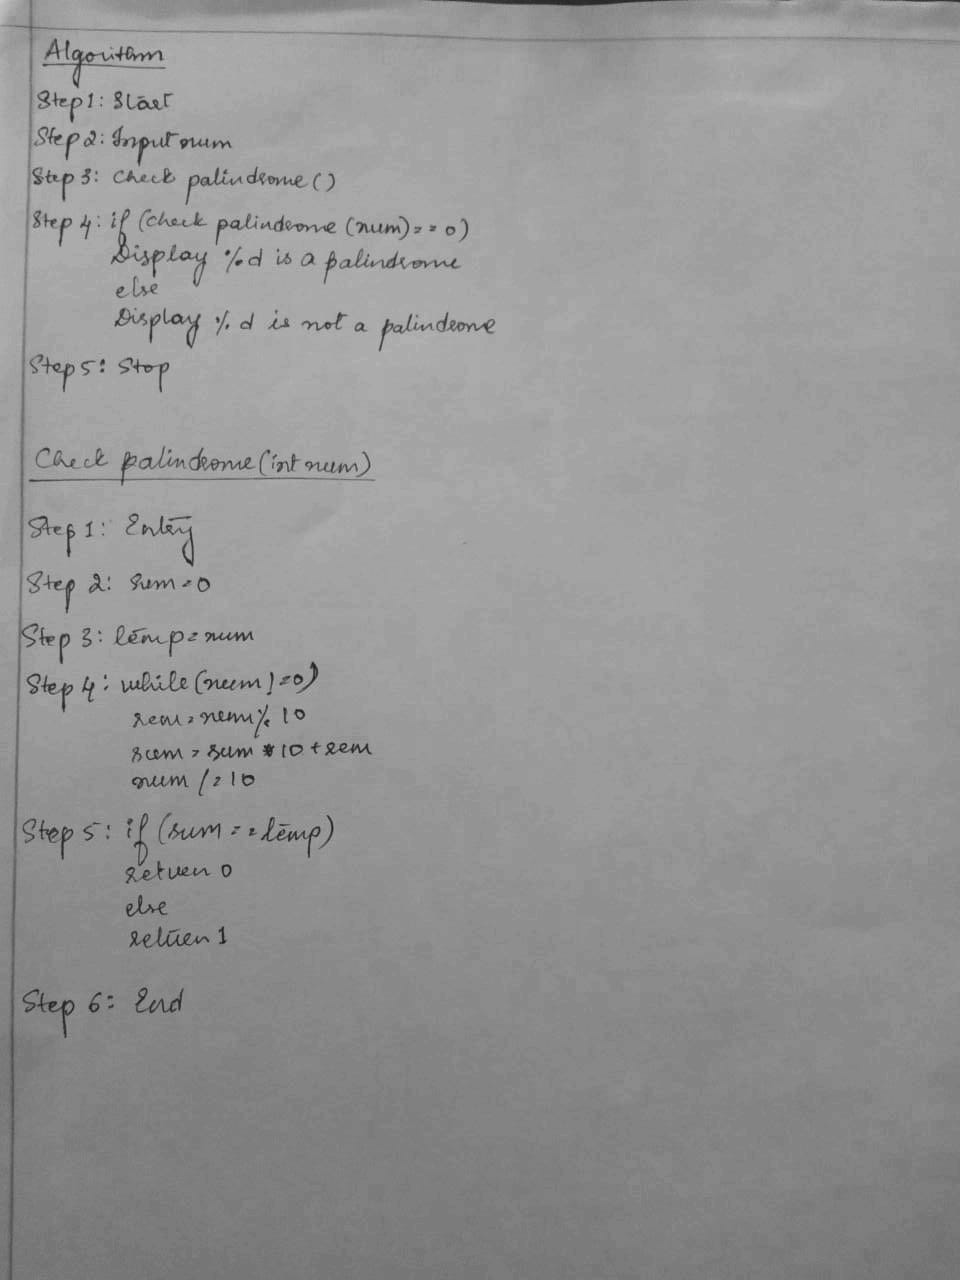 Algorithm
Step 1: Start
Step 2: Input num
Step 3: Check palindrome()
Step 4: if (check palindrome (num) == 0)
Display %d is a palindrome
else
Display %d is not a palindrome
Step 5: Stop
Check palindrome (int num)
Step 1: Entry
Step 2: sum=0
Step 3: temp=num
Step 4: while (num !=0)
rem=num%10
sum=sum*10+rem
num /=10
Step 5: if (sum==temp)
return 0
else
return 1
Step 6: End